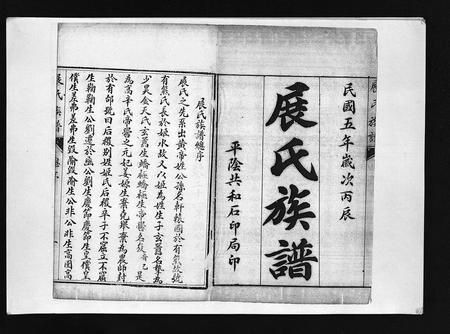 民國五年歲次丙辰
展氏族譜
平陰共和石印局印
展氏族譜總序
展氏之先系出黃帝姓公孫名軒轅國於有熊故號
有熊氏長於姬水故又以姬為姓生子玄囂名摯為
少昊金天氏玄囂生蟜極蟜極生帝嚳名夋是
為高辛氏帝嚳之元妃姜嫄生棄克堪棄為農師封
於有邰號曰后稷別姓姬氏后稷卒子不窋立不窋
生鞠鞠生公劉遷於豳公劉生慶節慶節生皇僕皇
僕生差弗差弗生毀隃毀隃生公非公非生高圉高
展氏族譜